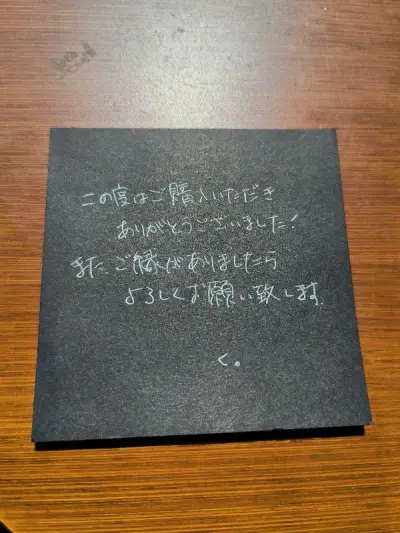 この度はご購入いただき
ありがとうございました!
また、ご縁がありましたら
よろしくお願い致します
く。